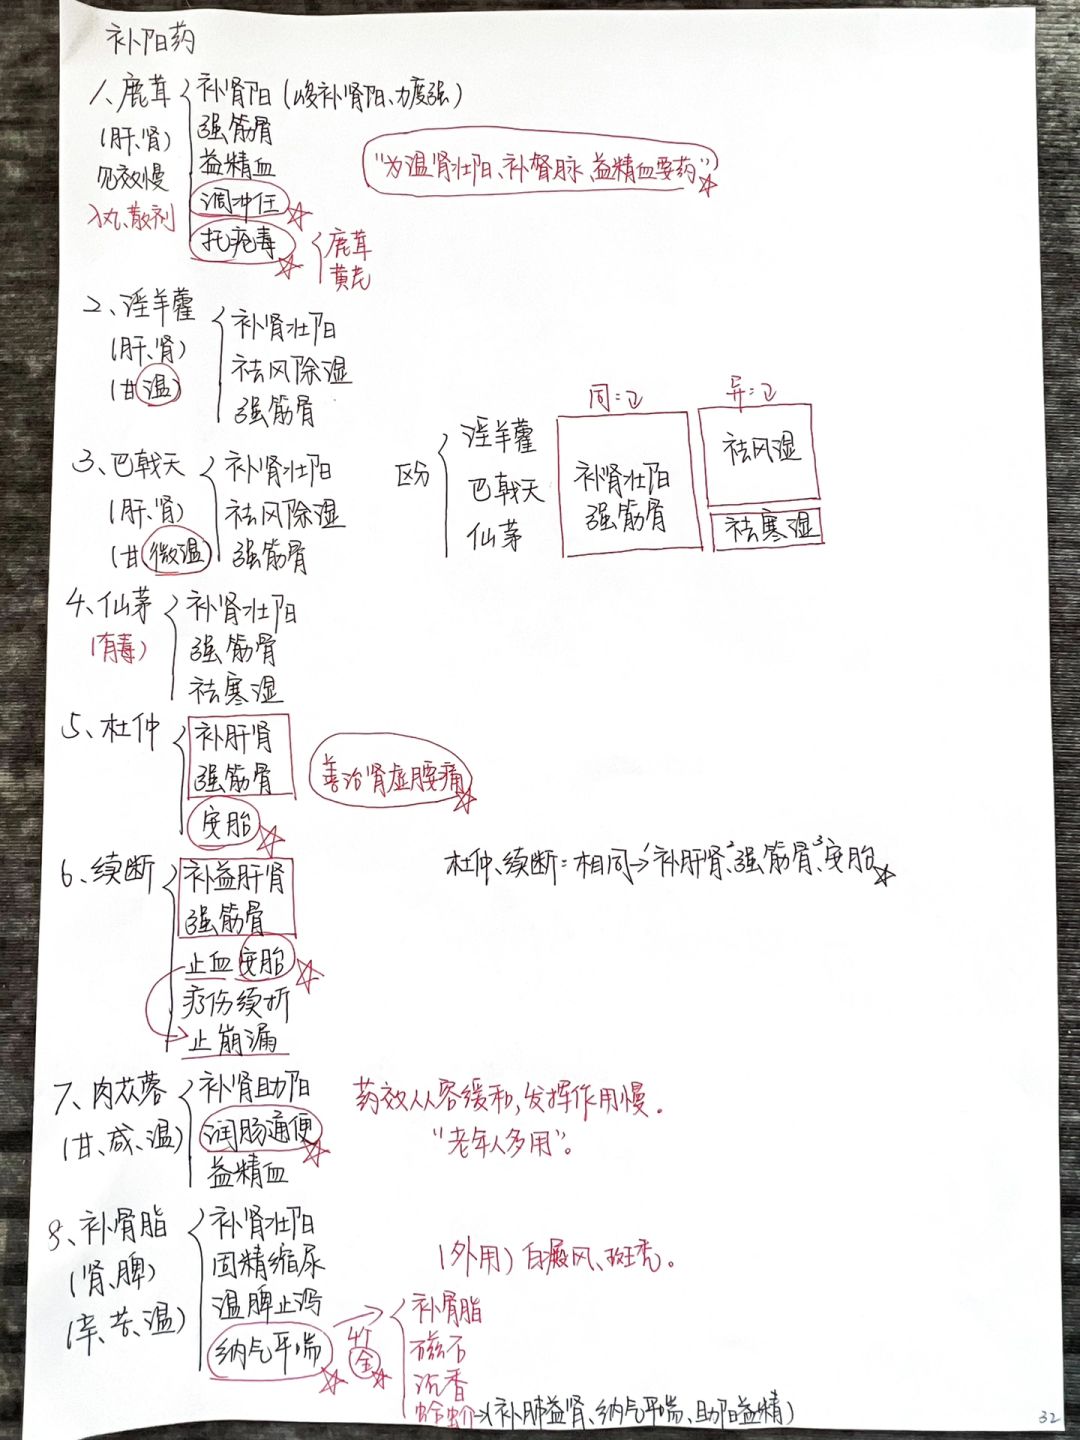 补阳药
1、鹿茸
(肝、肾)
见效慢
入丸、散剂
补肾阳(峻补肾阳、力度强)
强筋骨
益精血
调冲任
托疮毒
鹿茸
黄芪
"为温肾壮阳、补督脉、益精血要药"
2、淫羊藿
(肝、肾)
(甘温)
补肾壮阳
祛风除湿
强筋骨
3、巴戟天
(肝、肾)
(甘微温)
补肾壮阳
祛风除湿
强筋骨
区分
淫羊藿
巴戟天
仙茅
同:
补肾壮阳
强筋骨
异:
祛风湿
祛寒湿
4、仙茅
(有毒)
补肾壮阳
强筋骨
祛寒湿
5、杜仲
补肝肾
强筋骨
安胎
善治肾虚腰痛
6、续断
补益肝肾
强筋骨
止血安胎
疗伤续折
止崩漏
杜仲、续断:相同→1补肝肾、2强筋骨、3安胎
7、肉苁蓉
(甘、咸、温)
补肾助阳
润肠通便
益精血
药效从容缓和,发挥作用慢.
"老年人多用"。
8、补骨脂
(肾、脾)
(辛、苦、温)
补肾壮阳
固精缩尿
温脾止泻
纳气平喘
(外用)白癜风、斑秃。
4个
全
补骨脂
磁石
沉香
蛤蚧→(补肺益肾、纳气平喘、助阳益精)
32